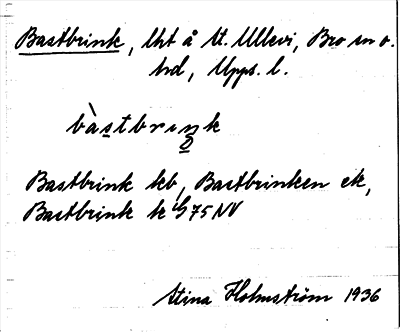 Bastbrink, lht å St. Ullevi, Bro sn o.
hd, Upps. l.
bàstbrink
Bastbrink kb, Bastbrinken ek,
Bastbrink k G 75 NV
Stina Holmström 1936